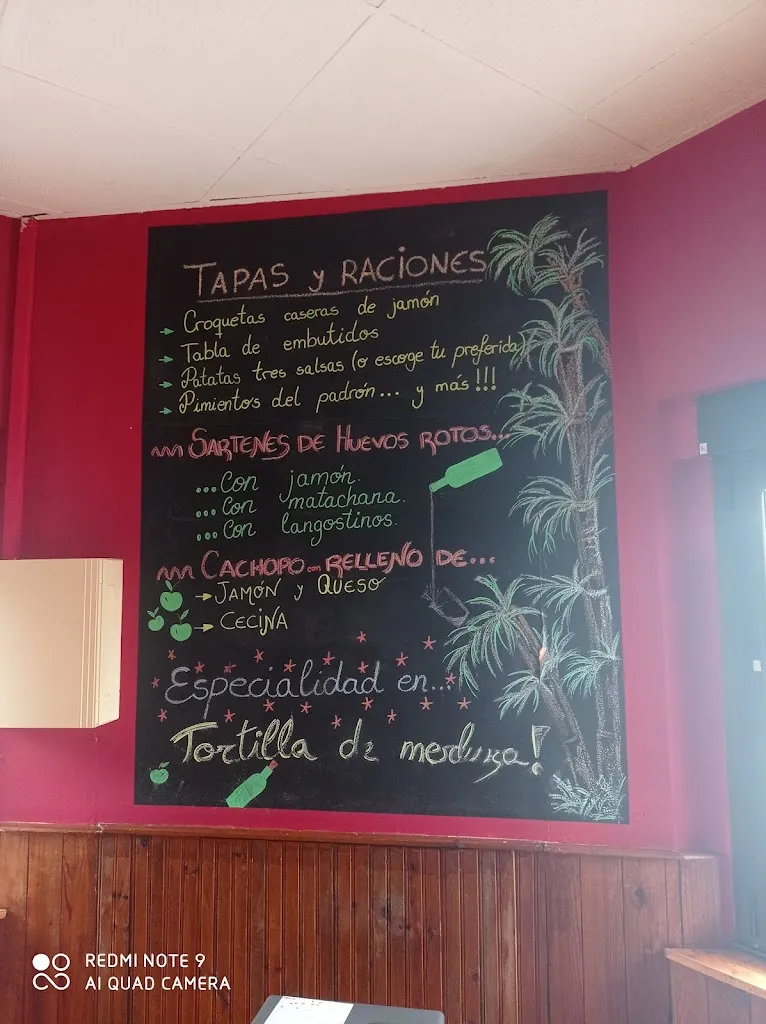 TAPAS y RACIONES
→ Croquetas caseras de jamón
→ Tabla de embutidos
→ Patatas tres salsas (o escoge tu preferida)
→ Pimientos del padrón... y más!!!
SARTENES DE HUEVOS ROTOS...
...Con jamón.
...Con matachana.
...Con langostinos.
CACHOPO con RELLENO DE...
→ JAMÓN y QUESO
→ CECINA
Especialidad en...
Tortilla de merduza!
REDMI NOTE 9
AI QUAD CAMERA